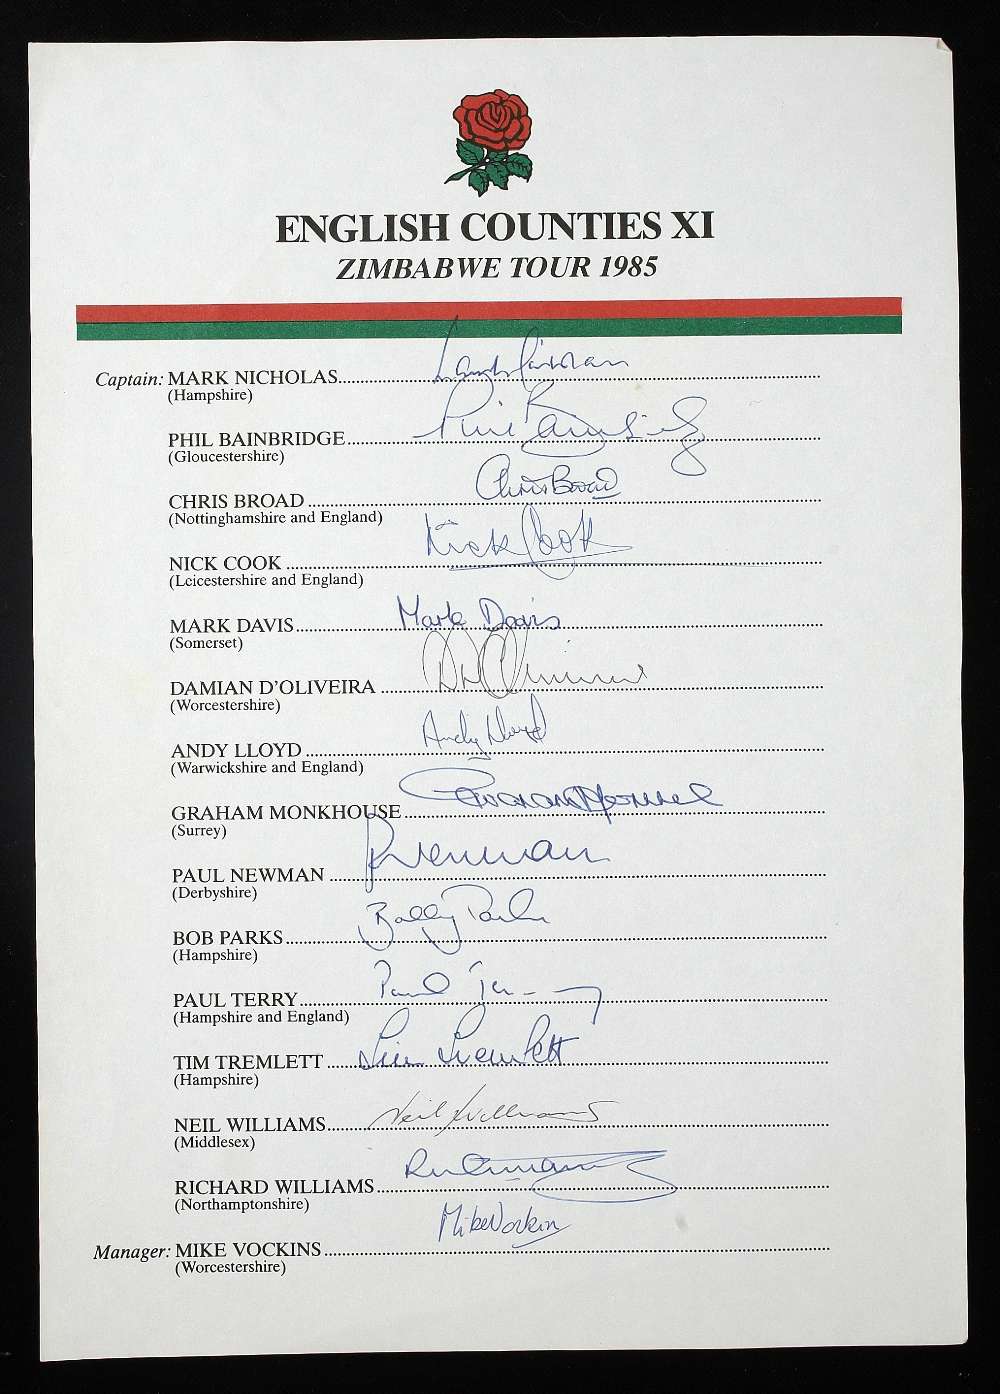 ENGLISH COUNTIES XI
ZIMBABWE TOUR 1985
Captain: MARK NICHOLAS
(Hampshire)
Phil Bainbridge
PHIL BAINBRIDGE
(Gloucestershire)
Chris Broad
CHRIS BROAD
(Nottinghamshire and England)
Nick Cook
NICK COOK
(Leicestershire and England)
Mark Davis
MARK DAVIS
(Somerset)
DAMIAN D'OLIVEIRA
(Worcestershire)
Andy Lloyd
ANDY LLOYD
(Warwickshire and England)
GRAHAM MONKHOUSE
(Surrey)
P Newman
PAUL NEWMAN
(Derbyshire)
Bobby Parks
BOB PARKS
(Hampshire)
Paul Terry
PAUL TERRY
(Hampshire and England)
Tim Tremlett
TIM TREMLETT
(Hampshire)
Neil Williams
NEIL WILLIAMS
(Middlesex)
RICHARD WILLIAMS
(Northamptonshire)
Mike Vockins
Manager: MIKE VOCKINS
(Worcestershire)